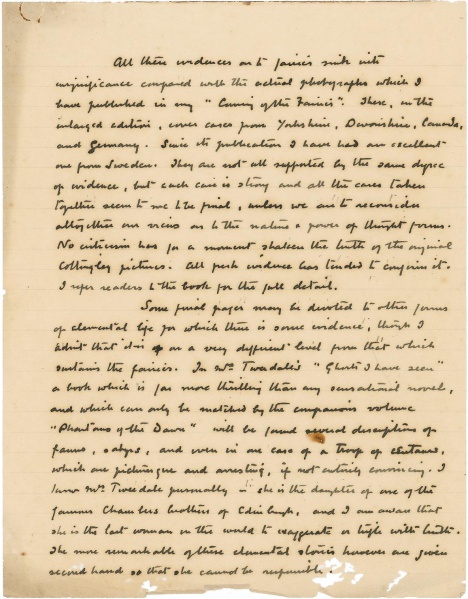 All these evidences as to fairies sink into
insignificance compared with the actual photographs which I
have published in my "Coming of the Fairies". These, in the
enlarged edition, cover cases from Yorkshire, Devonshire, Canada,
and Germany. Since its publication I have had an excellent
one from Sweden. They are not all supported by the same degree
of evidence, but each case is strong and all the cases taken
together seem to me to be final, unless we are to reconsider
altogether our views as to the nature & power of thought forms.
No criticism has for a moment shaken the truth of the original
Cottingley pictures. All fresh evidence has tended to confirm it.
I refer readers to the book for the full detail.
Some final pages may be devoted to other forms
of elemental life for which there is some evidence, though I
admit that it is on a very different level from that which
sustains the fairies. In Mrs. Tweedale's "Ghosts I have seen"
a book which is far more thrilling than any sensational novel,
and which can only be matched by the companion volume
"Phantoms of the Dawn" will be found several descriptions of
fauns, satyrs, and even in one case of a troop of centaurs,
which are picturesque and arresting, if not entirely convincing. I
know Mrs. Tweedale personally - she is the daughter of one of the
famous Chambers brothers of Edinburgh, and I am aware that
she is the last woman in the world to exaggerate or trifle with truth.
The more remarkable of these elemental stories however are given
second hand so that she cannot be responsible.